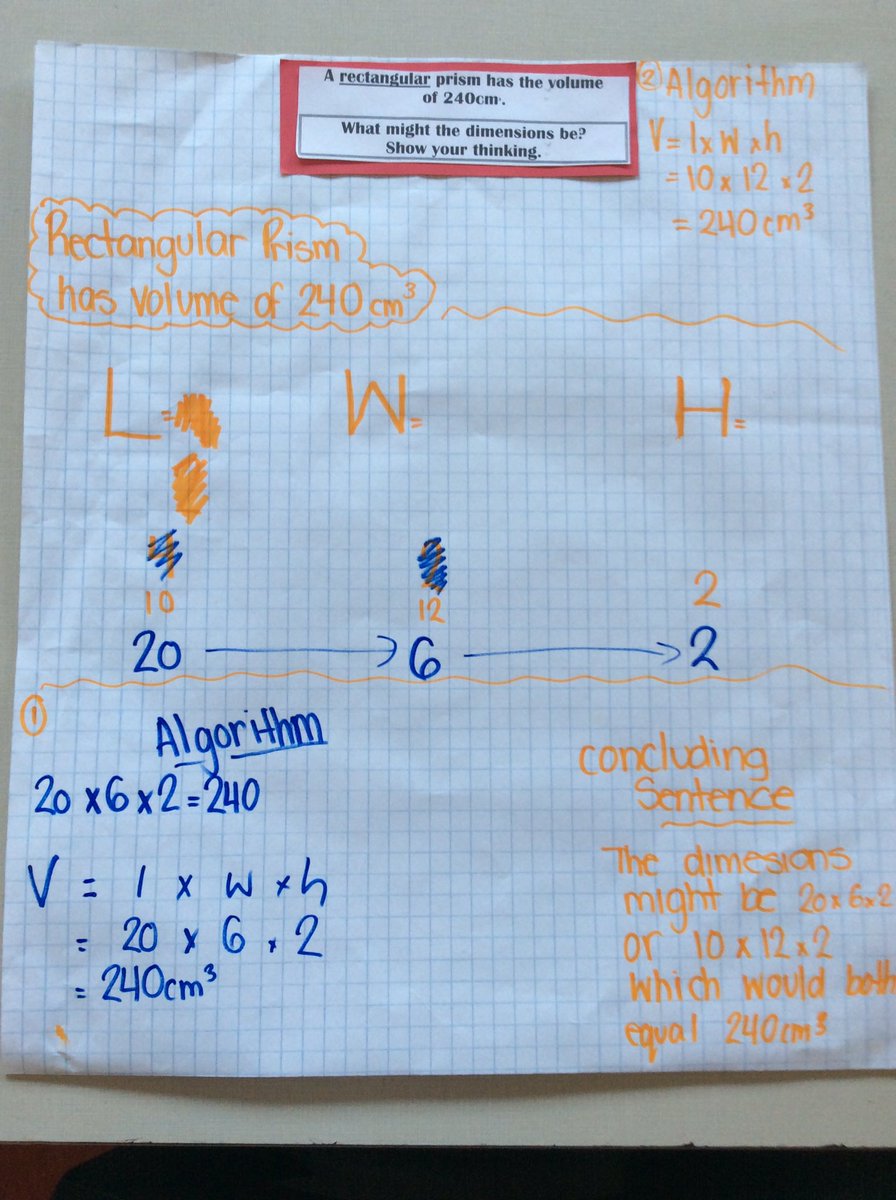 A rectangular prism has the volume
of 240cm.
What might the dimensions be?
Show your thinking.
② Algorithm
V = l x w x h
= 10 x 12 x 2
= 240 cm³
Rectangular Prism
has volume of 240 cm³
L = W = H =
10 12 2
20 → 6 → 2
①
Algorithm
20 x 6 x 2 = 240
V = l x w x h
= 20 x 6 x 2
= 240cm³
concluding
Sentence
The dimesions
might be 20x6x2
or 10 x 12 x 2
which would both
equal 240cm³